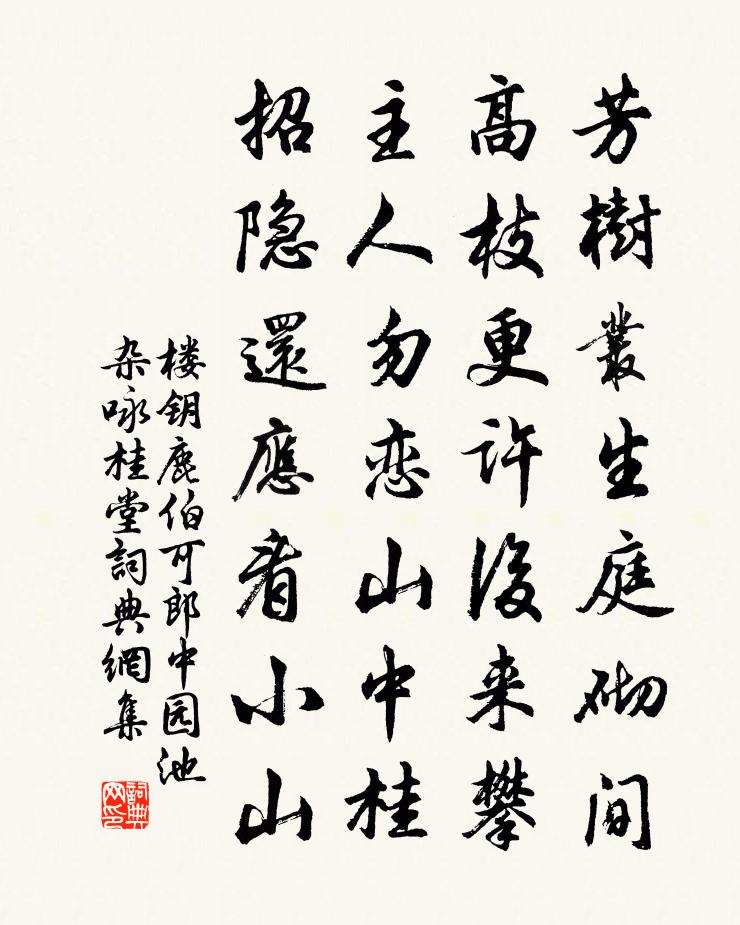 芳樹叢生庭砌间
高枝更许後来攀
主人勿恋山中桂
招隐還應看小山
楼钥鹿伯可郎中园池
杂咏桂堂詞典網集
詞典
网印